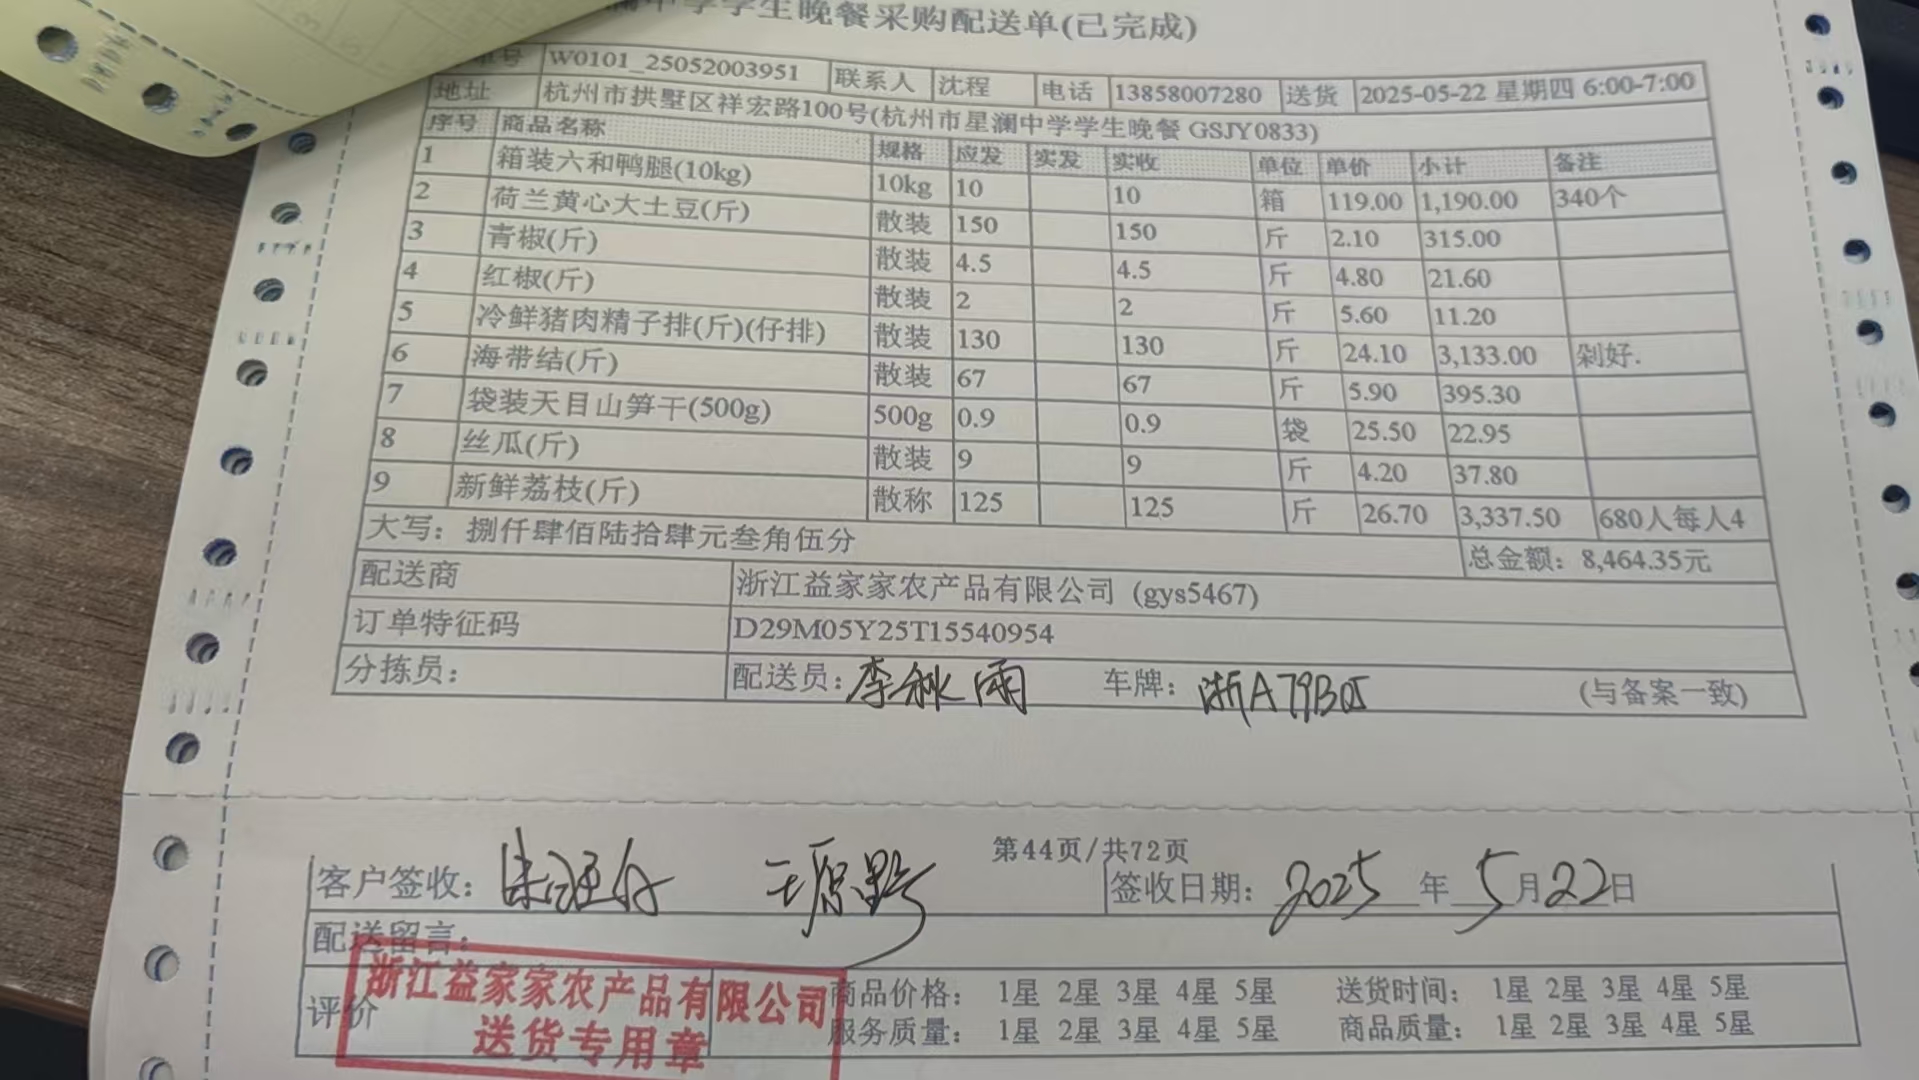 中学学生晚餐采购配送单(已完成)
单号 W0101_25052003951 联系人 沈程 电话 13858007280 送货 2025-05-22 星期四 6:00-7:00
地址 杭州市拱墅区祥宏路100号(杭州市星澜中学学生晚餐 GSJY0833)
序号 商品名称 规格 应发 实发 实收 单位 单价 小计 备注
1 箱装六和鸭腿(10kg) 10kg 10 10 箱 119.00 1,190.00 340个
2 荷兰黄心大土豆(斤) 散装 150 150 斤 2.10 315.00
3 青椒(斤) 散装 4.5 4.5 斤 4.80 21.60
4 红椒(斤) 散装 2 2 斤 5.60 11.20
5 冷鲜猪肉精子排(斤)(仔排) 散装 130 130 斤 24.10 3,133.00 剁好.
6 海带结(斤) 散装 67 67 斤 5.90 395.30
7 袋装天目山笋干(500g) 500g 0.9 0.9 袋 25.50 22.95
8 丝瓜(斤) 散装 9 9 斤 4.20 37.80
9 新鲜荔枝(斤) 散称 125 125 斤 26.70 3,337.50 680人每人4
大写：捌仟肆佰陆拾肆元叁角伍分 总金额：8,464.35元
配送商 浙江益家家农产品有限公司 (gys5467)
订单特征码 D29M05Y25T15540954
分拣员： 配送员：李秋雨 车牌：浙A79B05 (与备案一致)
第44页/共72页
客户签收： 签收日期：2025年5月22日
配送留言：
评价 商品价格： 1星 2星 3星 4星 5星 送货时间： 1星 2星 3星 4星 5星
服务质量： 1星 2星 3星 4星 5星 商品质量： 1星 2星 3星 4星 5星
浙江益家家农产品有限公司
送货专用章